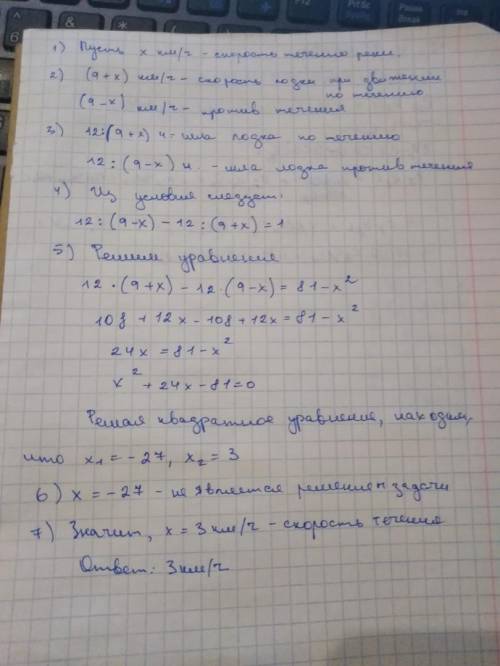 1) Пусть x км/ч - скорость течения реки.
2) (9+x) км/ч - скорость лодки при движении
по течению
(9-x) км/ч - против течения
3) 12:(9+x) ч - шла лодка по течению
12:(9-x) ч - шла лодка против течения
4) Из условия следует:
12:(9-x) - 12:(9+x) = 1
5) Решим уравнение
12·(9+x) - 12·(9-x) = 81-x²
108 + 12x - 108 + 12x = 81-x²
24x = 81-x²
x² + 24x - 81 = 0
Решая квадратное уравнение, находим,
что x₁ = -27, x₂ = 3
6) x = -27 - не является решением задачи
7) Значит, x = 3 км/ч - скорость течения
Ответ: 3 км/ч